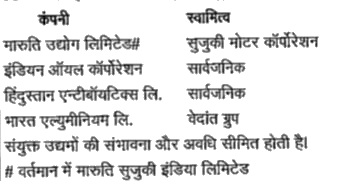 कंपनी स्वामित्व
मारुति उद्योग लिमिटेड# सुजुकी मोटर कॉर्पोरेशन
इंडियन ऑयल कॉर्पोरेशन सार्वजनिक
हिंदुस्तान एन्टीबॉयटिक्स लि. सार्वजनिक
भारत एल्युमीनियम लि. वेदांत ग्रुप
संयुक्त उद्यमों की संभावना और अवधि सीमित होती है।
# वर्तमान में मारुति सुजुकी इंडिया लिमिटेड